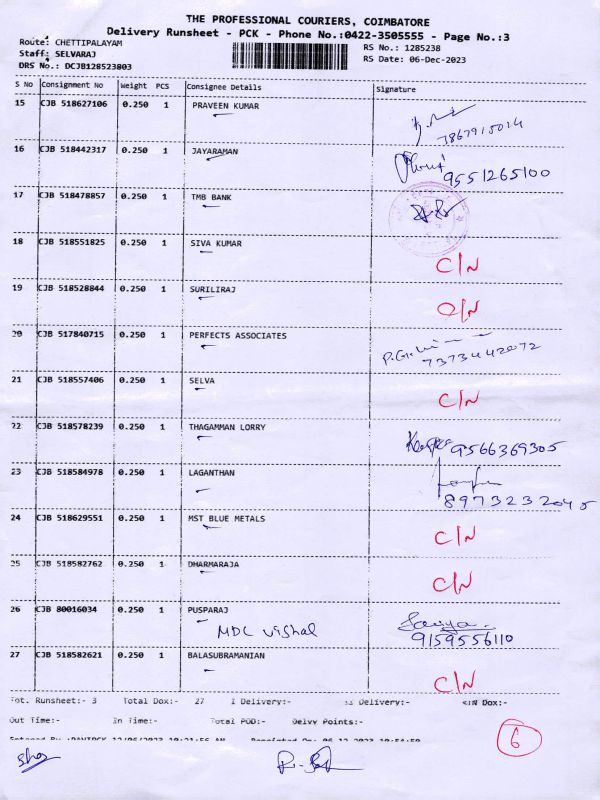 THE PROFESSIONAL COURIERS, COIMBATORE
Delivery Runsheet - PCK - Phone No.:0422-3505555 - Page No.:3
Route: CHETTIPALAYAM RS No.: 1285238
Staff: SELVARAJ RS Date: 06-Dec-2023
DRS No.: DCJB128523803
S No Consignment No Weight PCS Consignee Details Signature
15 CJB 518627106 0.250 1 PRAVEEN KUMAR
7867915014
16 CJB 518442317 0.250 1 JAYARAMAN
9551265100
17 CJB 518478857 0.250 1 TMB BANK
18 CJB 518551825 0.250 1 SIVA KUMAR C/N
19 CJB 518528844 0.250 1 SURILIRAJ O/N
20 CJB 517840715 0.250 1 PERFECTS ASSOCIATES
7373442072
21 CJB 518557406 0.250 1 SELVA C/N
22 CJB 518578239 0.250 1 THAGAMMAN LORRY 9566369305
23 CJB 518584978 0.250 1 LAGANTHAN
8973232045
24 CJB 518629551 0.250 1 MST BLUE METALS C/N
25 CJB 518582762 0.250 1 DHARMARAJA C/N
26 CJB 80016034 0.250 1 PUSPARAJ
MDC Vishal 9159556110
27 CJB 518582621 0.250 1 BALASUBRAMANIAN C/N
Tot. Runsheet:- 3 Total Dox:- 27 I Delivery:- Delivery:- Dox:-
Out Time:- In Time:- Total POD:- Delvy Points:-
6